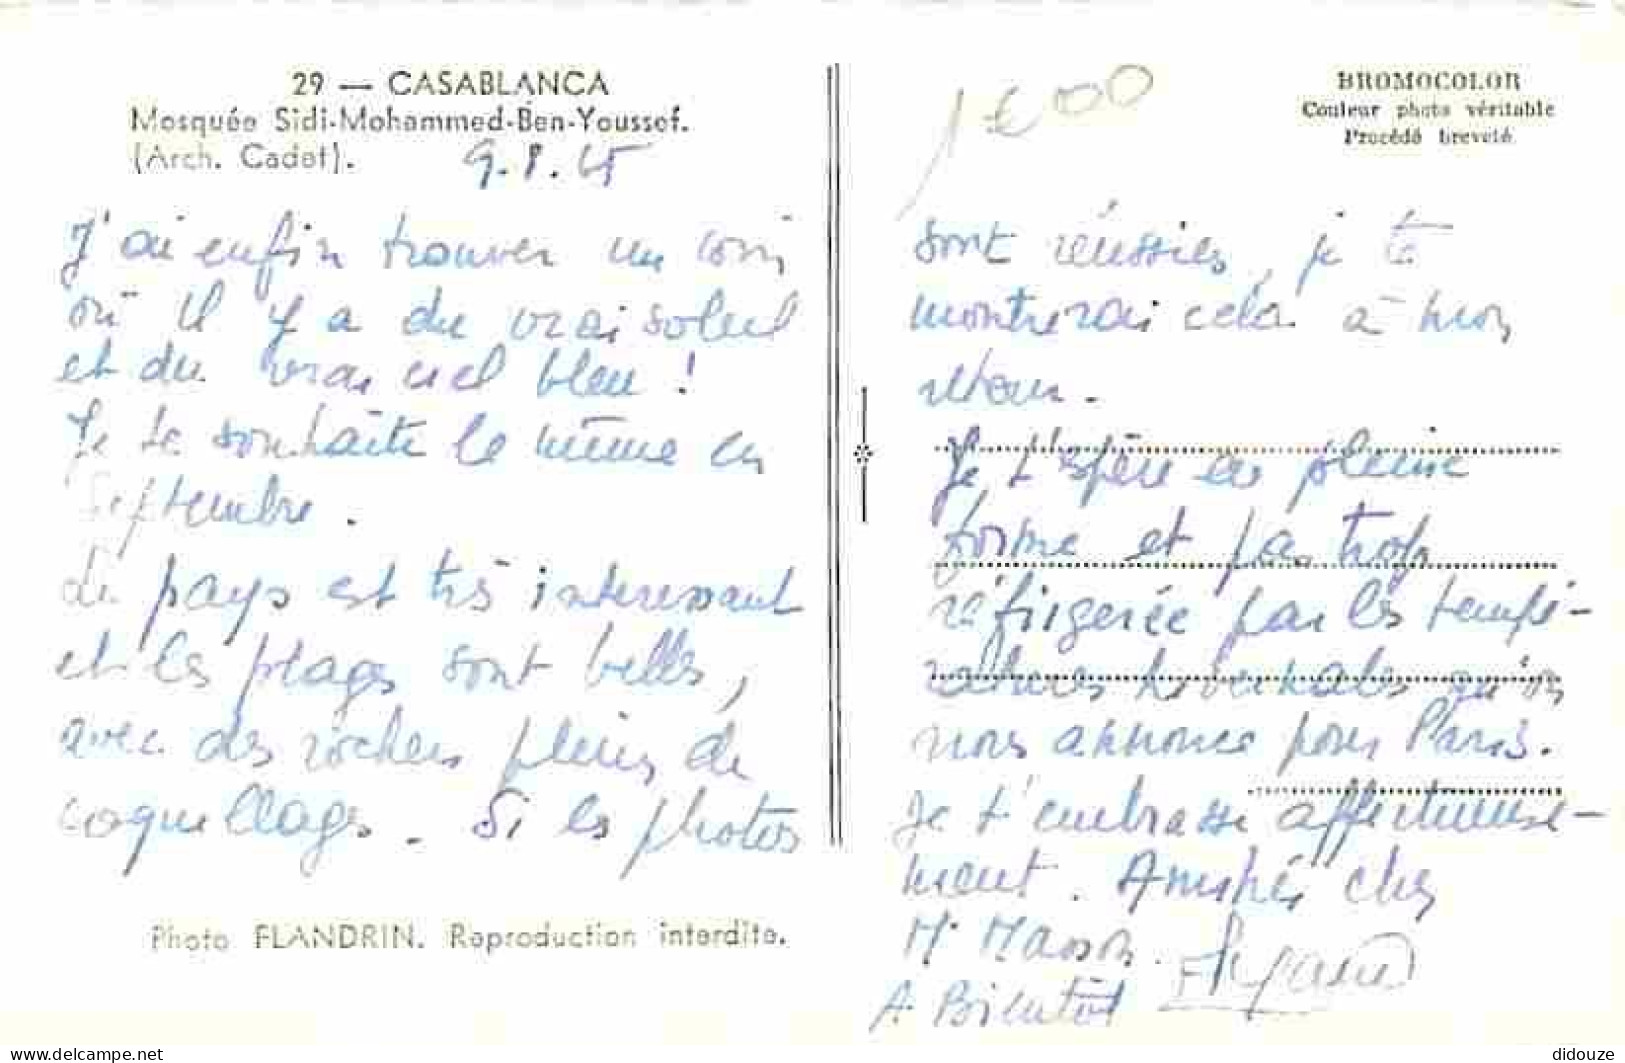 29 — CASABLANCA
Mosquée Sidi-Mohammed-Ben-Youssef.
(Arch. Cadet).
9.8.65
J'ai enfin trouver un coin
où il y a du vrai soleil
et du vrai ciel bleu !
Je te souhaite le même en
Septembre.
Le pays est très interessant
et les plages sont belles,
avec des rochers pleins de
coquillages. Si les photos
Photo FLANDRIN. Reproduction interdite.
1€00
BROMOCOLOR
Couleur photo véritable
Procédé breveté
sont réussies, je te
montrerai cela à mon
retour.
Je t'espère en pleine
forme et pas trop
réfrigerée par les tempé-
ratures hivernales qu'on
nous annonce pour Paris.
Je t'embrasse affectueuse-
ment. Amitiés chez
Mr Masson.
A Bientôt
https://www.delcampe.net
didouze